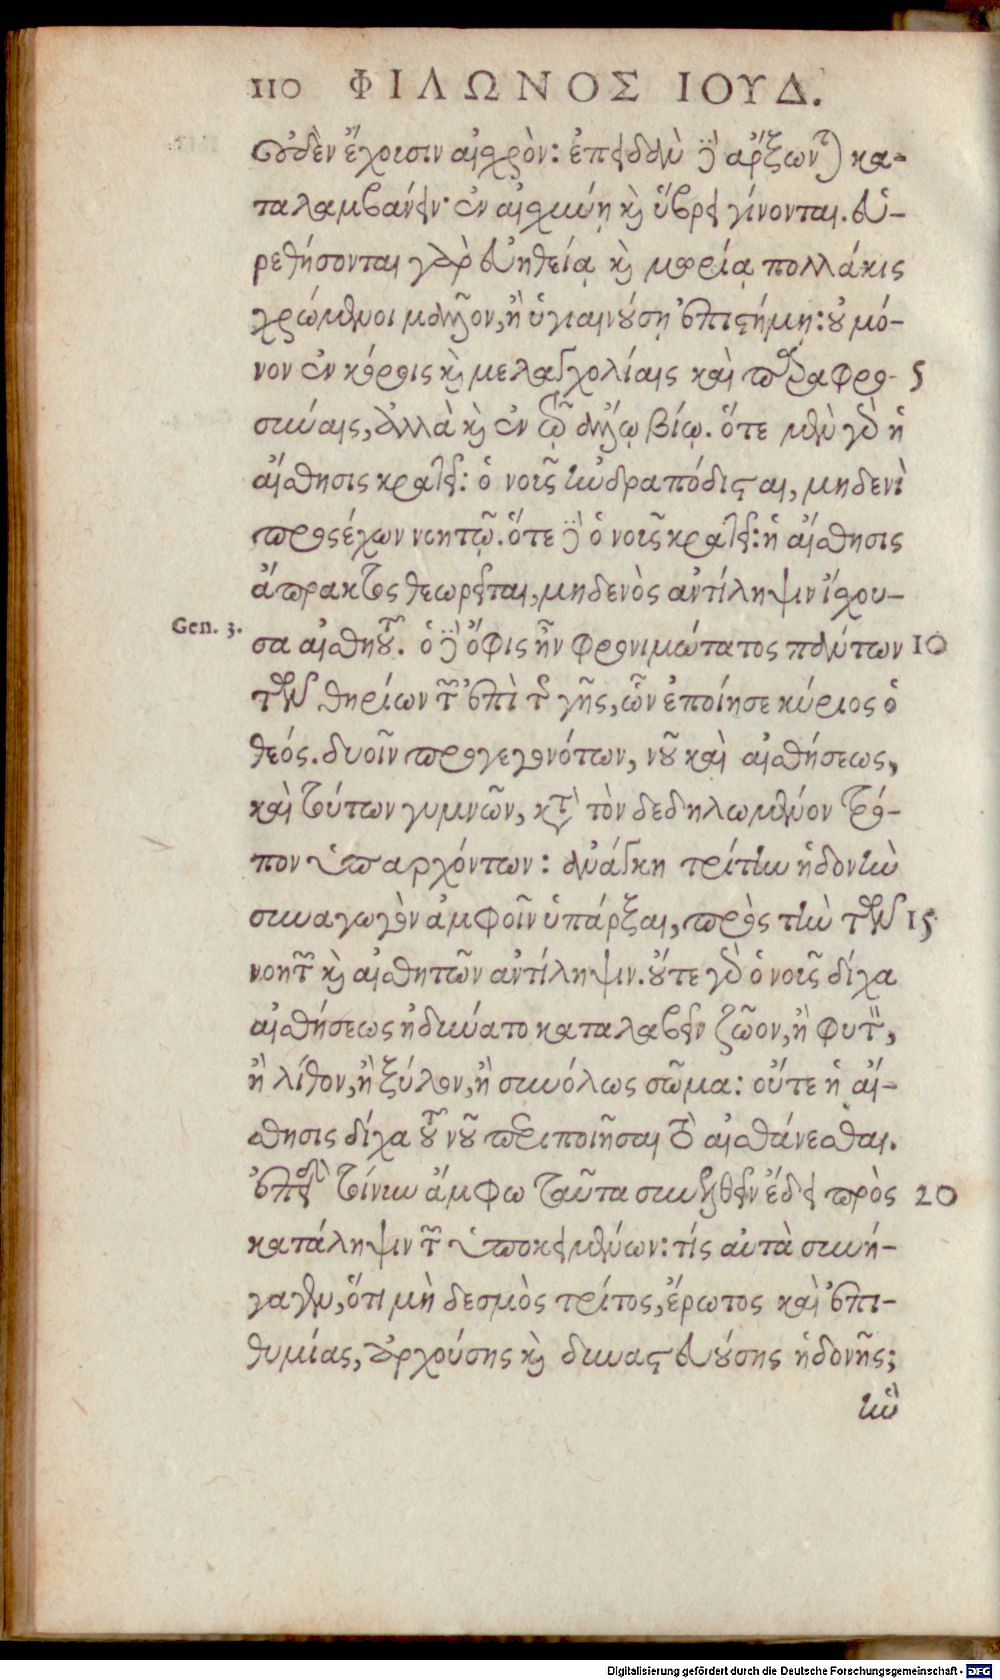 110 ΦΙΛΩΝΟΣ ΙΟΥΔ.
οὐδὲν ἔχουσιν αἰσχρὸν: ἐπειδὰν δὲ ἄρξωνται κα-
ταλαμβάνειν· ἐν αἰσχύνῃ καὶ ὕβρει γίνονται. εὑ-
ρεθήσονται γὰρ εὐηθείᾳ καὶ μωρίᾳ πολλάκις
χρώμενοι μᾶλλον, ἢ ὑγιαινούσῃ ἐπιστήμῃ: οὐ μό-
νον ἐν κόροις καὶ μελαγχολίαις καὶ παραφρο- 5
σύναις, ἀλλὰ καὶ ἐν τῷ ἄλλῳ βίῳ. ὅτε μὲν γὰρ ἡ
αἴσθησις κρατεῖ: ὁ νοῦς ἠνδραπόδισται, μηδενὶ
προσέχων νοητῷ. ὅτε δὲ ὁ νοῦς κρατεῖ: ἡ αἴσθησις
ἄπρακτος θεωρεῖται, μηδενὸς ἀντίληψιν ἴσχου-
Gen. 3.
σα αἰσθητοῦ. ὁ δὲ ὄφις ἦν φρονιμώτατος πάντων 10
τῶν θηρίων τῶν ἐπὶ τῆς γῆς, ὧν ἐποίησε κύριος ὁ
θεός. δυοῖν προγεγονότων, νοῦ καὶ αἰσθήσεως,
καὶ τούτων γυμνῶν, κατὰ τὸν δεδηλωμένον τρό-
πον ὑπαρχόντων: ἀνάγκη τρίτην ἡδονὴν
συναγωγὸν ἀμφοῖν ὑπάρξαι, πρὸς τὴν τῶν 15
νοητῶν καὶ αἰσθητῶν ἀντίληψιν. οὔτε γὰρ ὁ νοῦς δίχα
αἰσθήσεως ἠδύνατο καταλαβεῖν ζῶον, ἢ φυτὸν,
ἢ λίθον, ἢ ξύλον, ἢ συνόλως σῶμα: οὔτε ἡ αἴ-
σθησις δίχα τοῦ νοῦ περιποιῆσαι τὸ αἰσθάνεσθαι.
ἐπειδὴ τοίνυν ἄμφω ταῦτα συνελθεῖν ἔδει πρὸς 20
κατάληψιν τῶν ὑποκειμένων: τίς αὐτὰ συνή-
γαγεν, ὅτι μὴ δεσμὸς τρίτος, ἔρωτος καὶ ἐπι-
θυμίας, ἀρχούσης καὶ δυναστευούσης ἡδονῆς;
ἣν
Digitalisierung gefördert durch die Deutsche Forschungsgemeinschaft - DFG